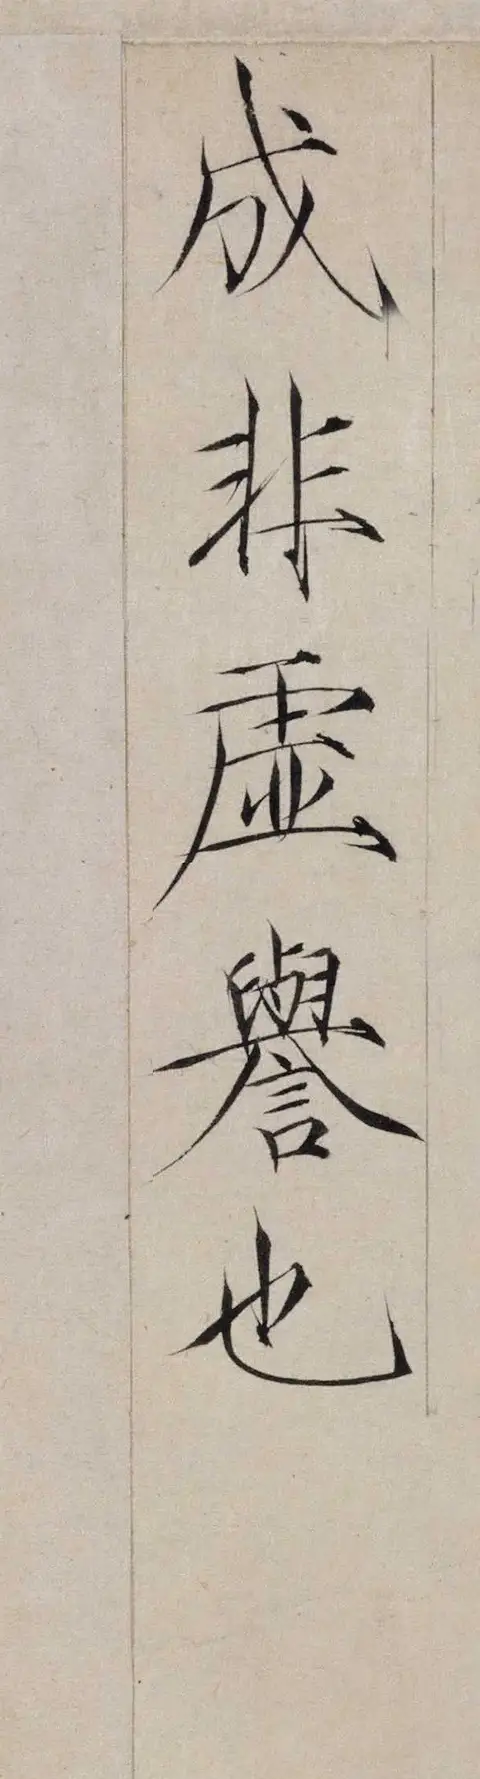 成非虛譽也